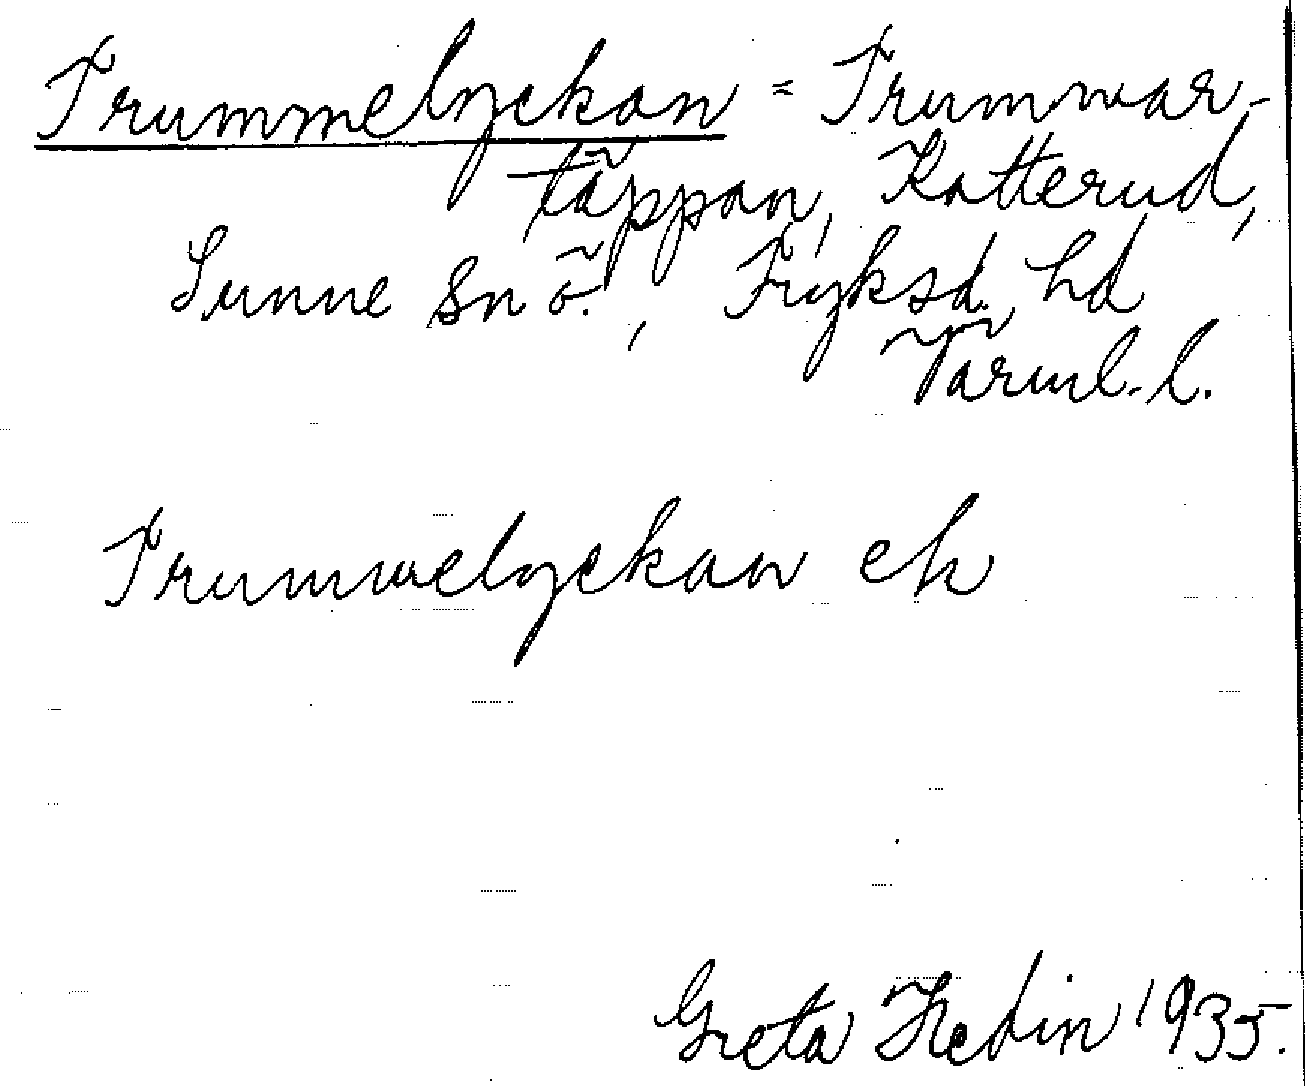 Trummelyckan = Trummar-
täppan, Katterud,
Sunne sn ö., Fryksd. hd
Värml. l.
Trummelyckan ek
Greta Hedin 1935.